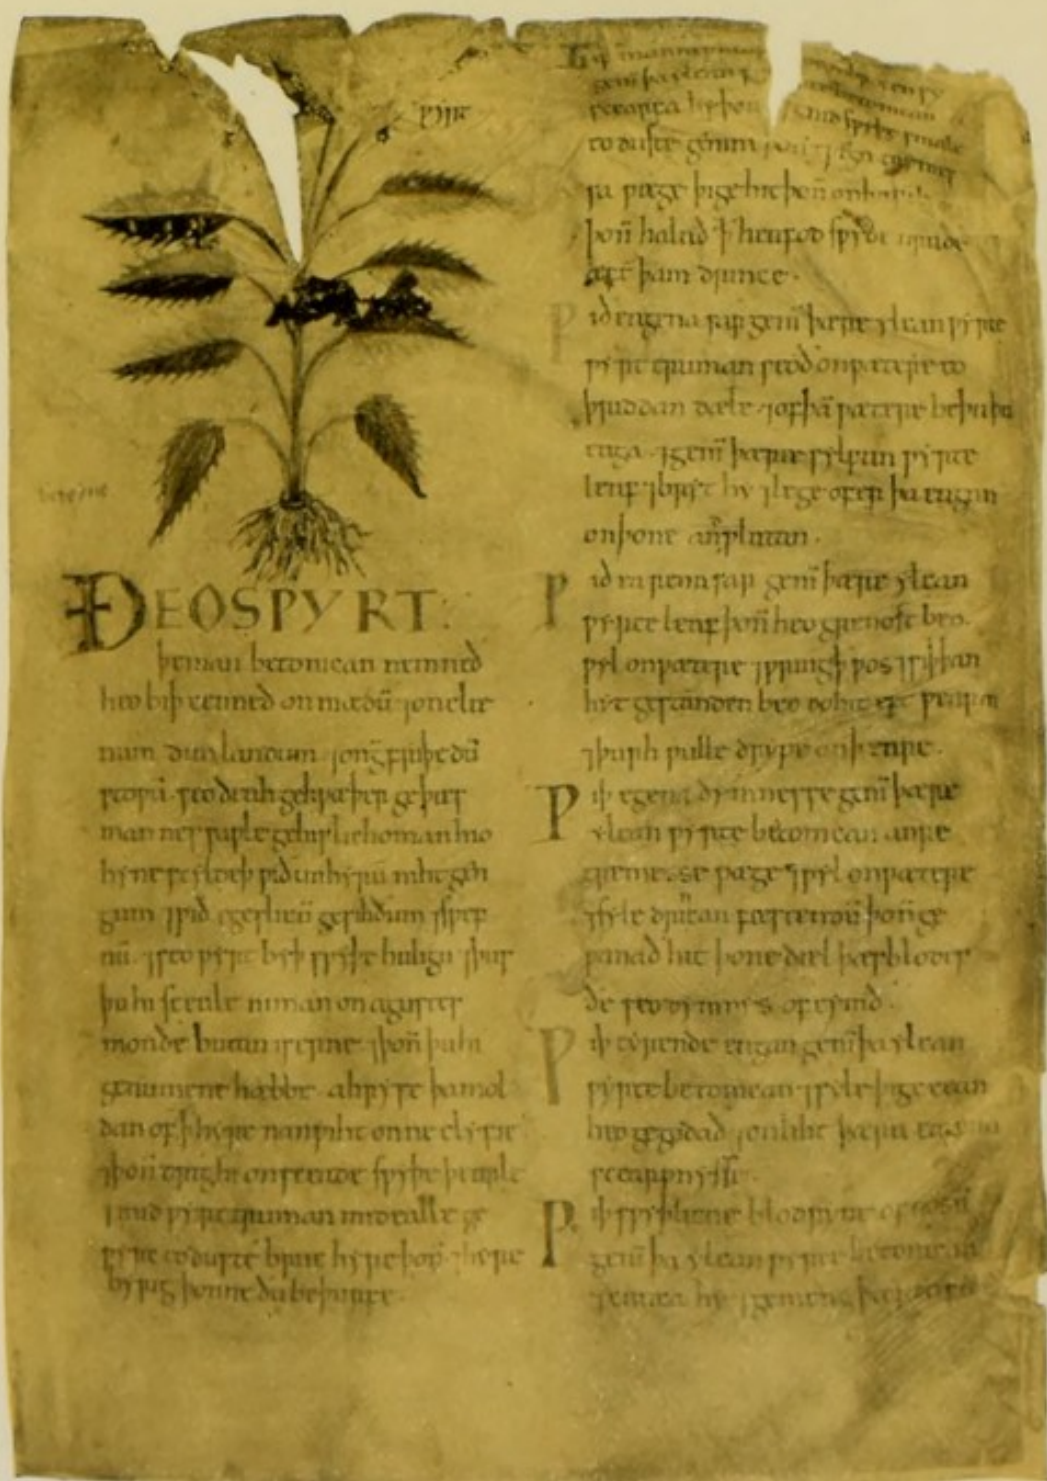 ǷYRT
ÐEOSǷYRT:
þe man betonican nemneð
heo biþ cenned on mædū ⁊ on clæ
num dunlandum ⁊ on gefriþedū
stoƿū. seo deah gehƿæþer ge þæs
mannes saƿle ge his lichoman hio
hyne scyldeþ ƿið unhyrū nihtgen
gum ⁊ ƿið egeslicū gesihðum ⁊ sƿef
nū. ⁊ seo ƿyrt byþ sƿyþe haligu ⁊ þus
þu hi scealt niman on agustes
monðe butan iserne ⁊ þoñ þu hi
genumene hæbbe. ahryse þa mol
dan of þ hyre nanƿiht on ne clyfie
⁊ þoñ drig hi on sceade sƿyþe þearle
⁊ mid ƿyrttruman mid ealle ge
ƿyrc to duste bruc hyre þoñ ⁊ hyre
byrig þonne ðu beþurfe.
Gif mannes
genī þa ylcan
scearfa hy þoñ
to duste genim
ra ƿæge þige hit þoñ on
þoñ halað ꝥ heafod sƿyðe
æft þam drince.
Ƿið eagena sar genī þære ylcan ƿyrte
ƿyrttruman seoð on ƿætere to
þriddan dæle ⁊ of þā ƿætere beþa þa
eaga ⁊ genī þære sylfan ƿyrte
leaf ⁊ bryt hy ⁊ lege ofer þa eagan
on þone anƿlatan.
Ƿið earena sar genī þære ylcan
ƿyrte leaf þoñ heo grenost beo.
ƿyl on ƿætere ⁊ ƿring ꝥ ƿos ⁊ siþþan
hyt gestanden beo do hit eft ƿearm
⁊ þurh ƿulle drype on ꝥ eare.
Ƿiþ egena dymnesse genī þære
ylcan ƿyrte betonican anre
tremesse ƿæge ⁊ ƿyl on ƿætere
⁊ syle drincan fæstendū þoñ ge
ƿanað hit þone dæl þæs blodes
ðe seo dymnys of cymð.
Ƿiþ tyrende eagan genī þa ylcan
ƿyrte betonican ⁊ syle þigccean
heo gegodað ⁊ onliht þæra eagena
scearpnysse.
Ƿiþ sƿyþlicne blodryne of nosū
genī þa ylcan ƿyrte betonican